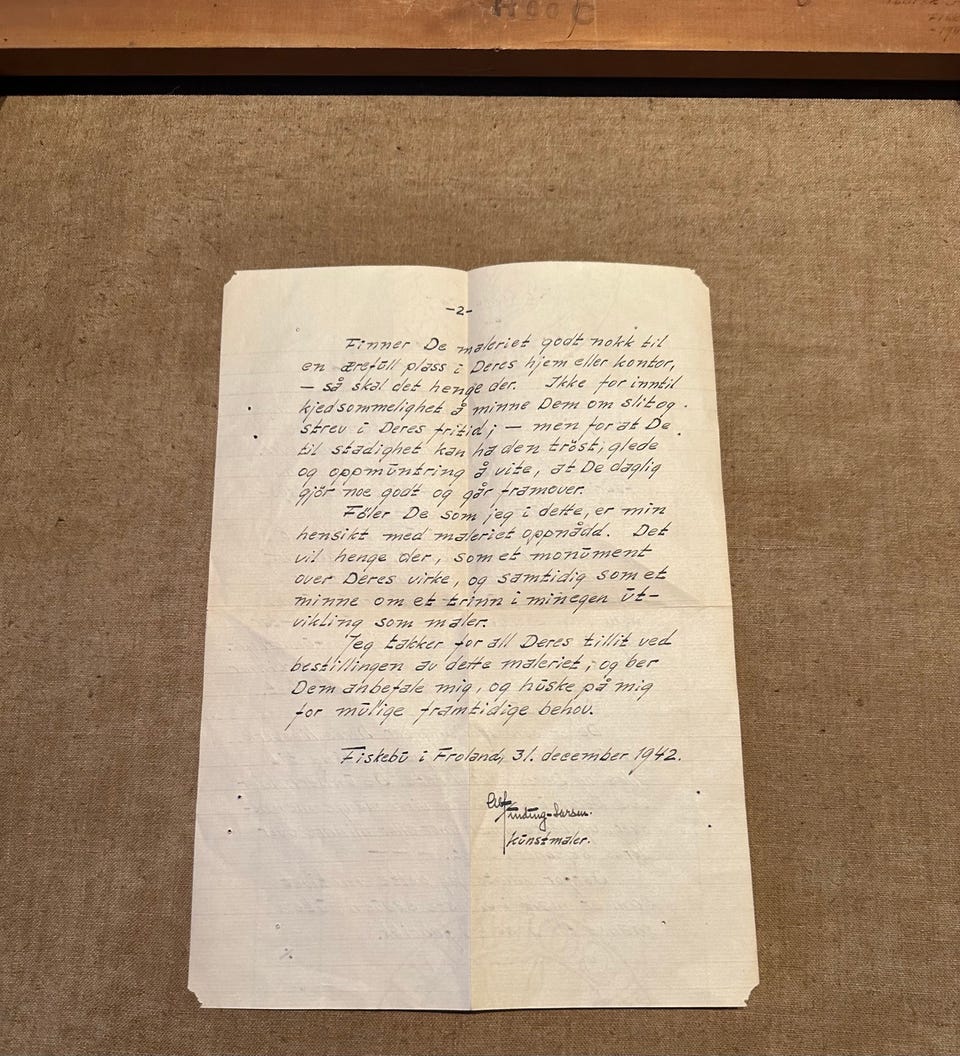 -2-
Finner De maleriet godt nokk til
en ærefull plass i Deres hjem eller kontor,
— så skal det henge der. Ikke for inntil
kjedsommelighet å minne Dem om slit og
strev i Deres fritid; — men for at De
til stadighet kan ha den tröst, glede
og oppmuntring å vite, at De daglig
gjör noe godt og går framover.
Föler De som jeg i dette, er min
hensikt med maleriet oppnådd. Det
vil henge der, som et monument
over Deres virke, og samtidig som et
minne om et trinn i min egen ut-
vikling som maler.
Jeg takker for all Deres tillit ved
bestillingen av dette maleriet, og ber
Dem anbefale mig, og huske på mig
for mulige framtidige behov.
Fiskebu i Froland, 31. december 1942.
Finding-Larsen.
Kunstmaler.